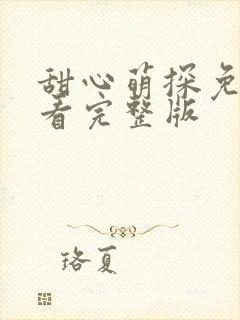 甜心萌探免
看完整版
珞夏